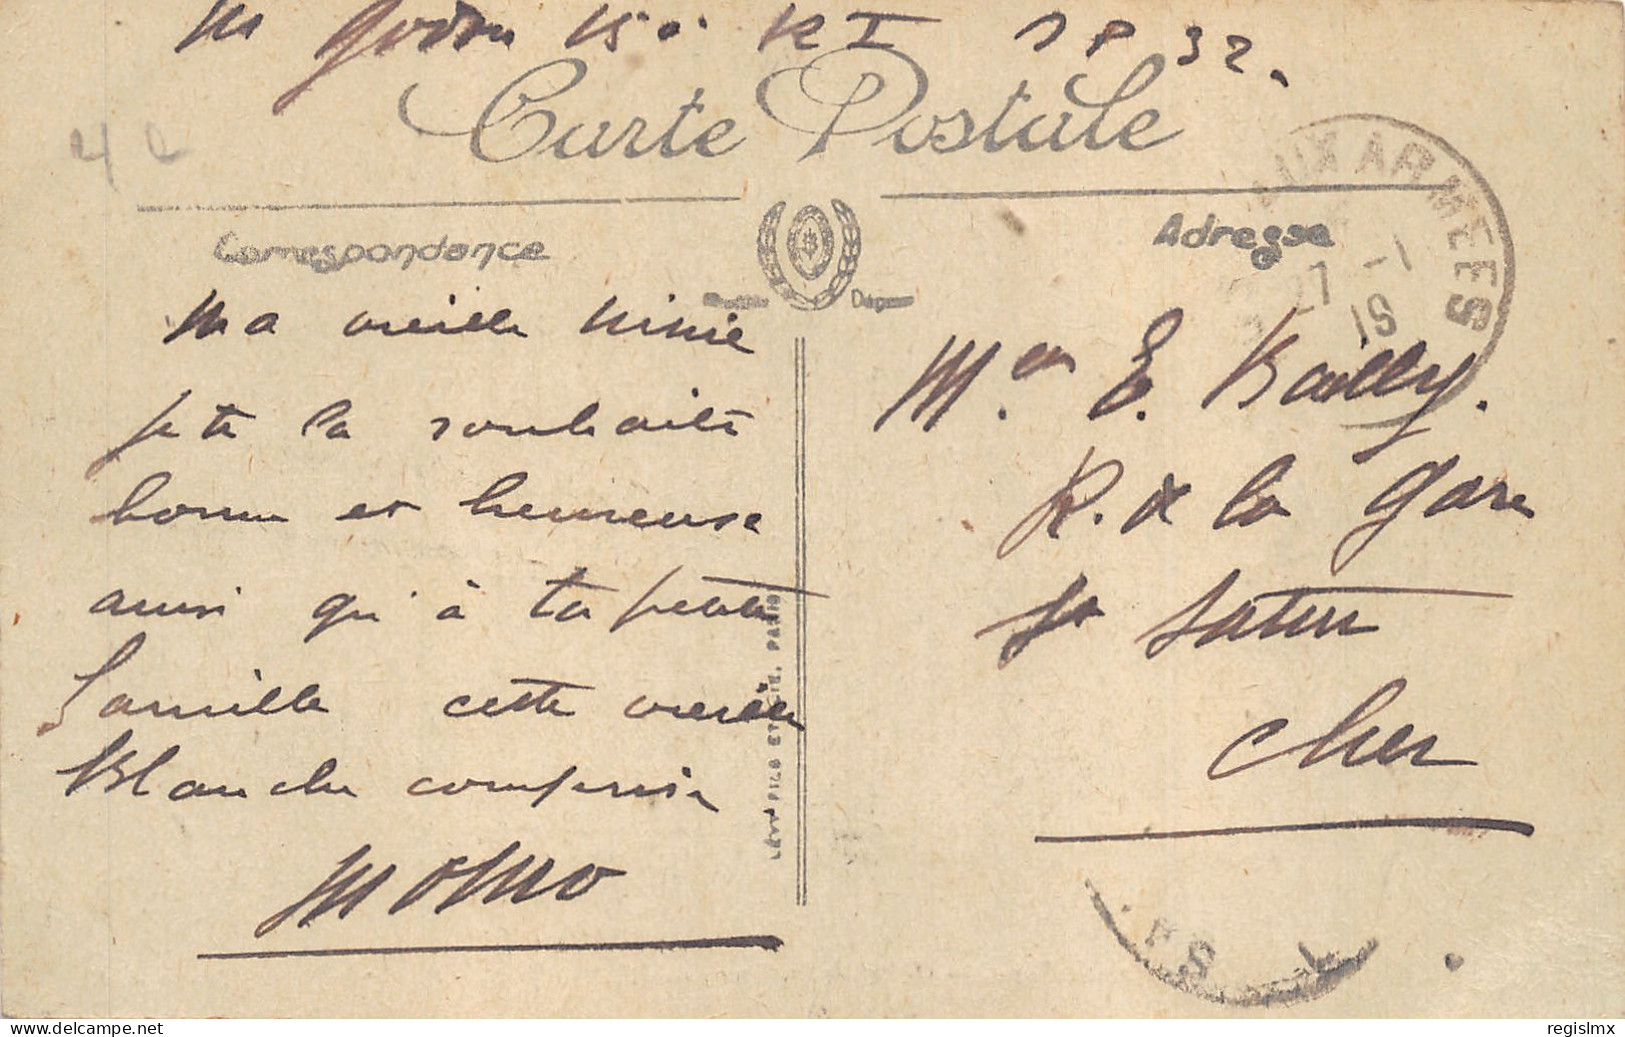 M Godon 15e R I S P 32.
Carte Postale
Correspondance
Adresse
AUX ARMEES
27 -1
19
Ma vieille Ninie
je te la souhaite
bonne et heureuse
ainsi qu'à ta petite
famille cette vieille
Blanche comprise
Momo
LÉVY FILS ET CIE. PARIS
Mme E. Bailly.
R. de la Gare
St Satur
Cher
delcampe.net
regislmx